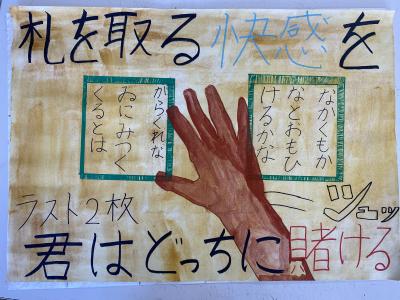 札を取る快感を
なかくもか
なとおもひ
けるかな
からくれな
ゐにみつく
くるとは
シュッ
ラスト2枚
君はどっちに賭ける